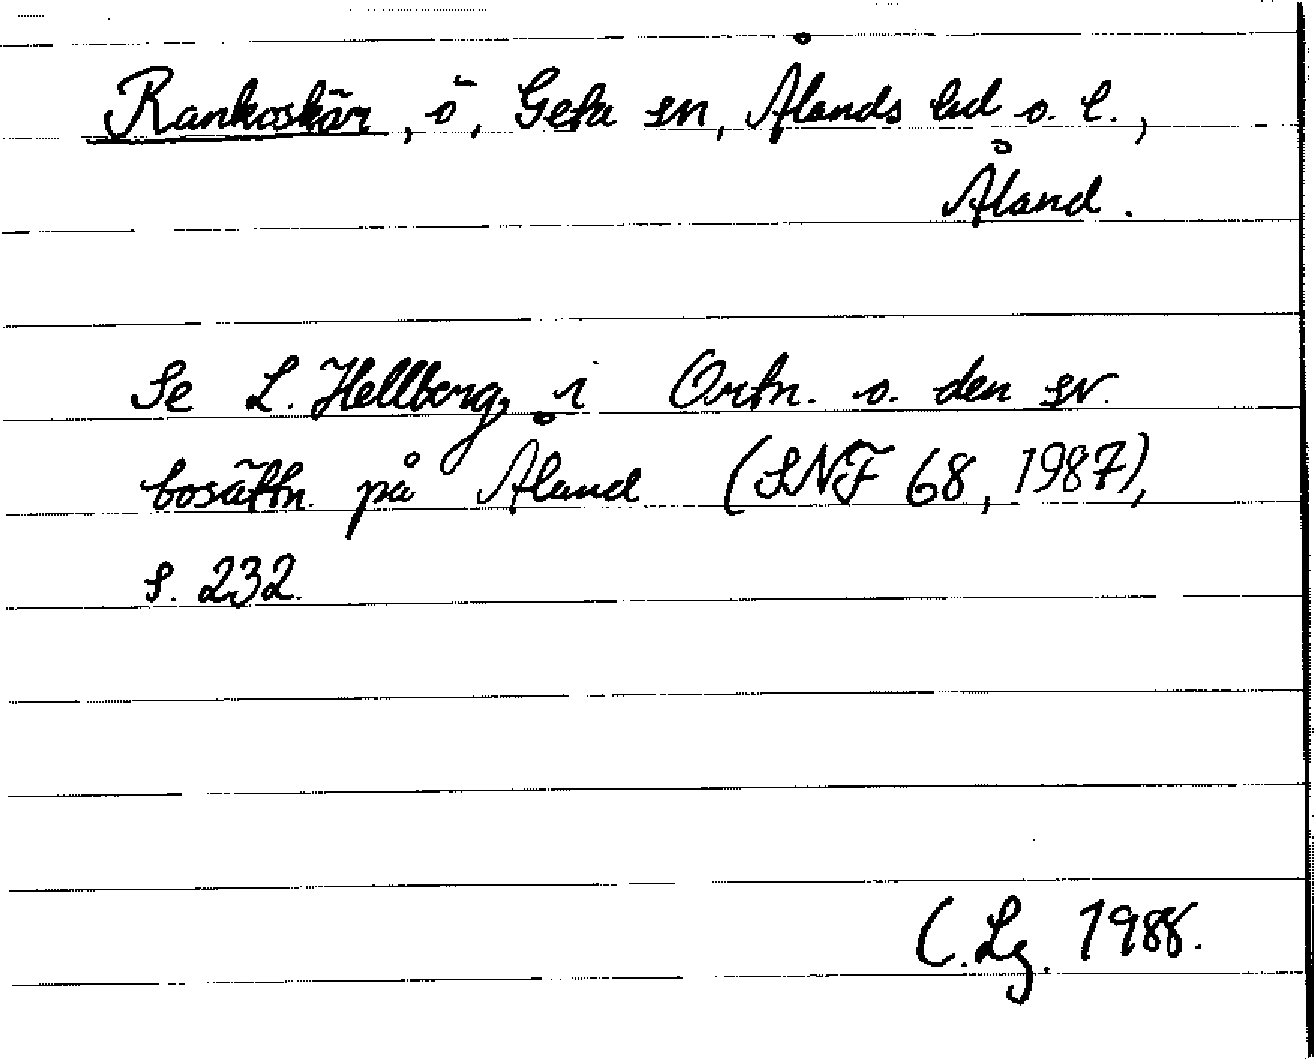 Rankoskär, ö, Geta sn, Ålands hd o. l.,
Åland.
Se L. Hellberg, i Ortn. o. den sv.
bosättn. på Åland (SNF 68, 1987),
s. 232.
C. Lg. 1988.